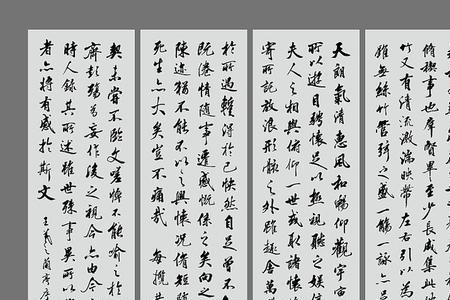 脩稧事也羣賢畢至少長咸集此
竹又有清流激湍映帶左右引以為
雖無絲竹管弦之盛一觴一詠亦足
天朗氣清惠風和暢仰觀宇宙
所以遊目騁懷足以極視聽之娛信
夫人之相與俯仰一世或取諸懷
寄所託放浪形骸之外雖趣舍萬
於所遇輙得於己快然自足曾不
既倦情隨事遷感慨係之矣向之
陳迹猶不能不以之興懷況脩短
死生亦大矣豈不痛哉 每攬
契未嘗不臨文嗟悼不能喻之於
齊彭殤為妄作後之視今亦由今
時人錄其所述雖世殊事異所以
者亦將有感於斯文 王羲之蘭亭序